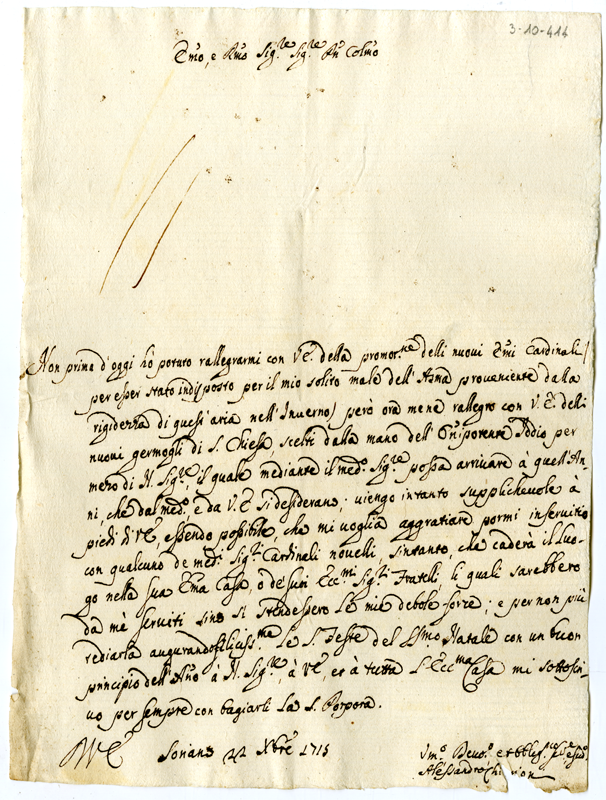 3-10-414
Emo, e Rmo Sig.re Sig.re Pn Colmo
Non prima d'oggi hò potuto rallegrarmi con VE. della promot.ne delli nuovi Emi Cardinali (
per esser stato indisposto per il mio solito male dell'Asma proveniente dalla
rigidezza di quest'aria nell'Inverno) però ora mene rallegro con V.E. delli
nuovi germogli di S. Chiesa, scelti dalla mano dell'Onipotente Iddio per
mezo di N. Sig.re, il quale mediante il med.o Sig.re possa arrivare à quell'An-
ni, che dal med.o e da V.E. si desiderano; vengo intanto supplichevole à
piedi di VE, essendo possibile, che mi voglia aggratiare pormi in servitio
con qualcuno de med.i Sig.ri Cardinali novelli, sintanto, che caderà il Luo-
go nella sua Ema Casa, ò de suoi Ecc.mi Sig.ri Fratelli, li quali sarebbero
da mè serviti sino si stendessero le mie debole forze; e per non più
tediarla augurandoli feliciss.me le S. Feste del SSmo Natale con un buon
principio dell'Año à N. Sig.re à VE, et à tutta l'Ecc.ma Casa mi sottoscri-
vo per sempre con bagiarli la S. Porpora.
Soriano 22 Xbre 1715
Um.o Devo.o et obblig.
Alessandro